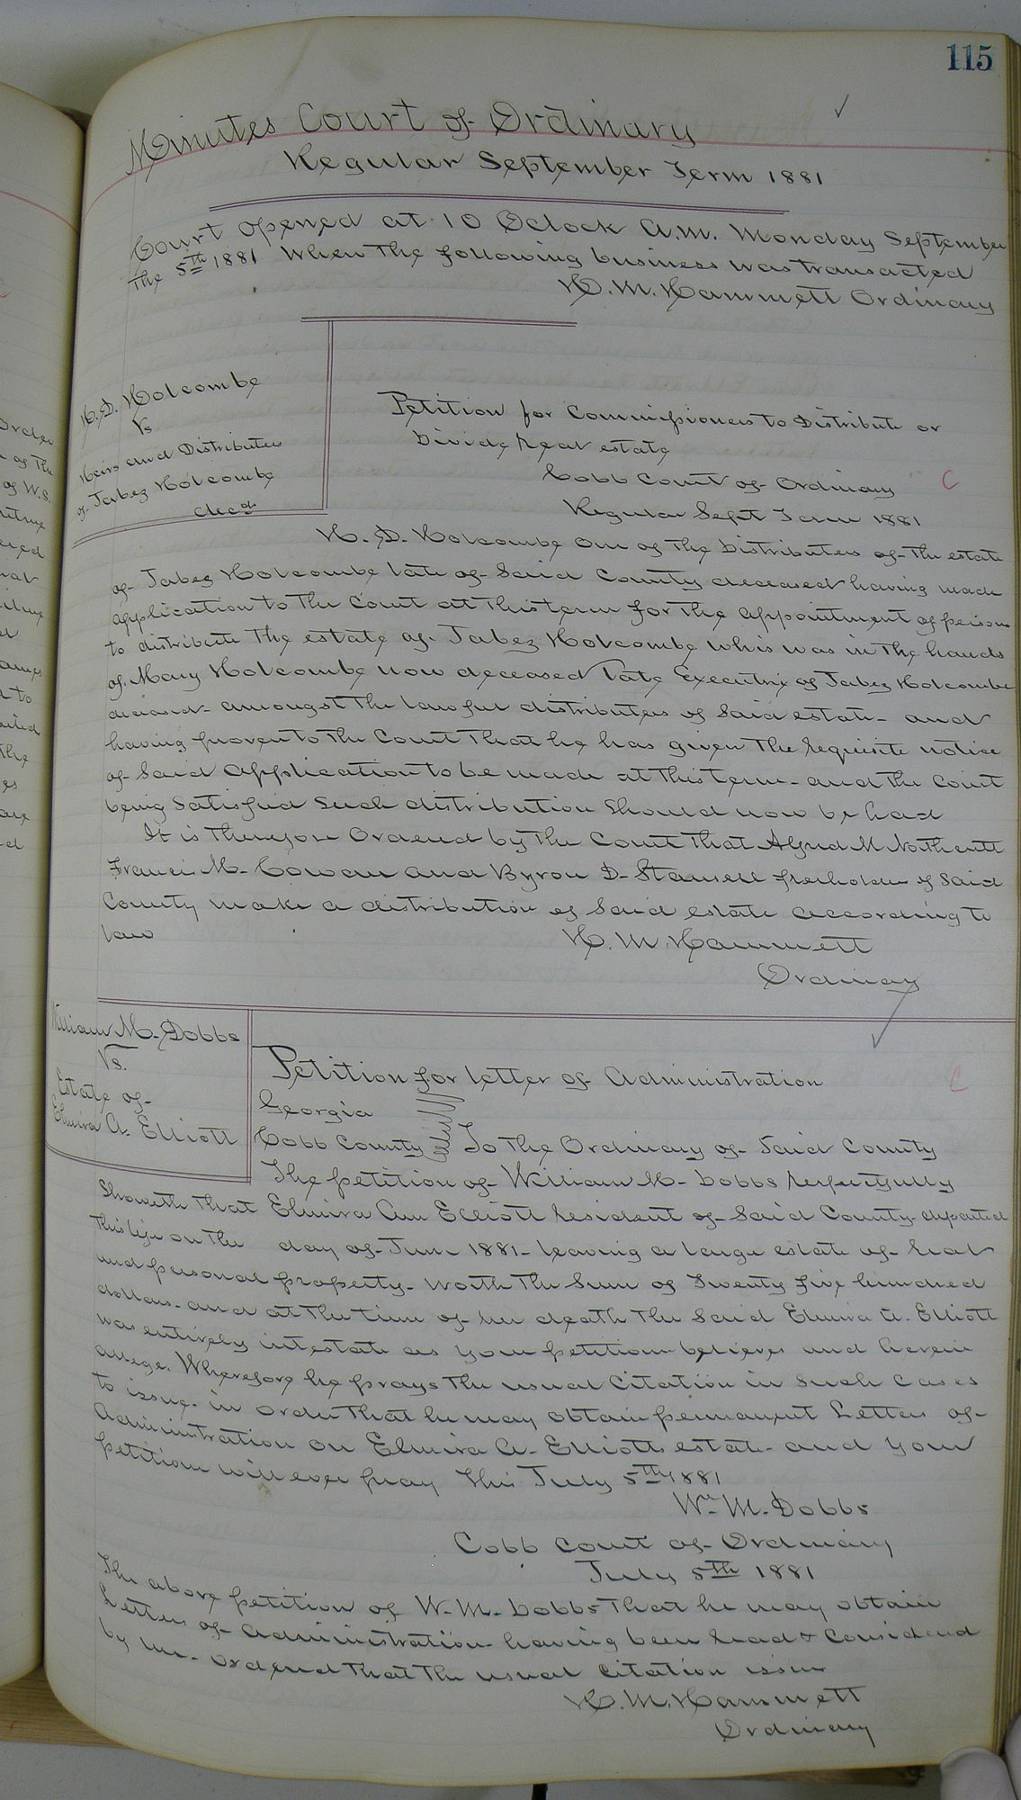 115
Minutes Court of Ordinary
Regular September Term 1881
Court opened at 10 Oclock A.M. Monday September
the 5th 1881 When the following business was transacted
H. M. Hammett Ordinary
H. D. Holcombe
Vs
Heirs and Distributees
of Jabez Holcombe
decd
Petition for Commissioners to Distribute or
Divide Real estate
Cobb Court of Ordinary
C
Regular Sept Term 1881
H. D. Holcombe One of the Distributees of the estate
of Jabez Holcombe late of Said County deceased having made
application to the Court at this term for the appointment of persons
to distribute the estate of Jabez Holcombe whis was in the hands
of Mary Holcombe now deceased late Executrix of Jabez Holcombe
deceased amongst the lawful distributees of Said estate and
having proven to the Court that he has given the requisite notice
of Said application to be made at this term and the Court
being Satisfied Such distribution Should now be had
It is therefore Ordered by the Court that Alfred M Northcutt
Francis M. Cowan and Byron D. Stansell freeholders of Said
County make a distribution of Said estate according to
law
H. M. Hammett
Ordinary
William M. Dobbs
Vs.
Estate of
Elmira A. Elliott
Petition for letter of Administration
C
Georgia
Cobb County To the Ordinary of Said County
The petition of William M. Dobbs Respectfully
Showeth that Elmira Ann Elliott Resident of Said County departed
this life on the day of June 1881 leaving a large estate of Real
and personal property worth the Sum of Twenty five hundred
dollars and at the time of her death the Said Elmira A. Elliott
was entirely intestate as your petitioner believes and herein
allege. Wherefore he prays the usual Citation in Such cases
to issue in order that he may obtain permanent Letters of
Administration on Elmira A. Elliotts estate and your
petitioner will ever pray this July 5th 1881
Wm M. Dobbs
Cobb Court of Ordinary
July 5th 1881
The above petition of W. M. Dobbs that he may obtain
Letters of administration having been Read & Considered
by me ordered that the usual Citation issue
H. M. Hammett
Ordinary